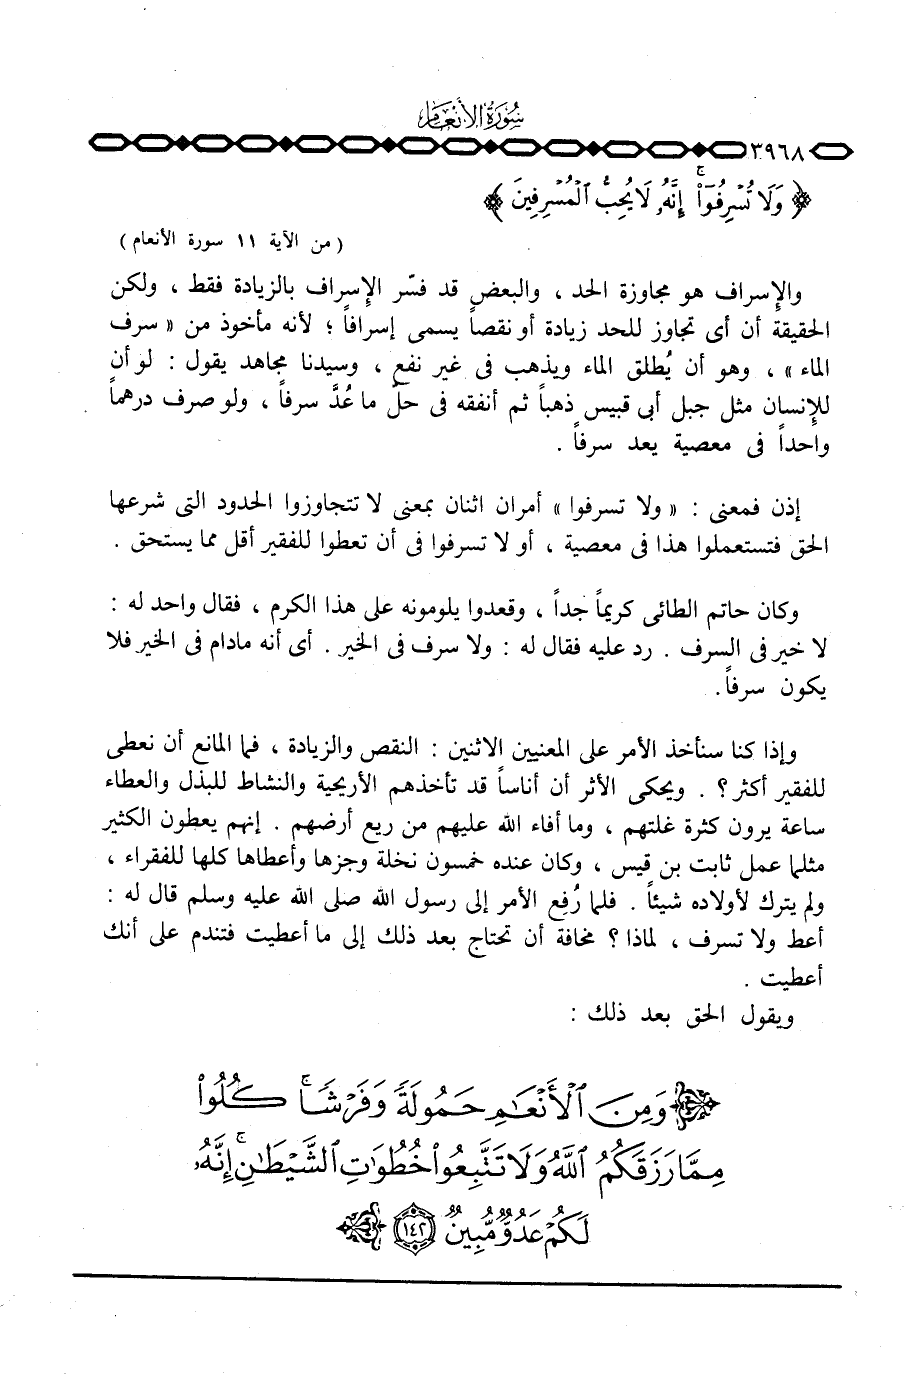 سُورَةُ الأَنْعَام
٣٩٦٨
﴿ وَلَا تُسْرِفُوٓا۟ ۚ إِنَّهُۥ لَا يُحِبُّ ٱلْمُسْرِفِينَ ﴾
( من الآية ١١ سورة الأنعام )
والإسراف هو مجاوزة الحد ، والبعض قد فسّر الإسراف بالزيادة فقط ، ولكن
الحقيقة أن أى تجاوز للحد زيادة أو نقصاً يسمى إسرافاً ؛ لأنه مأخوذ من « سرف
الماء » ، وهو أن يُطلق الماء ويذهب فى غير نفع ، وسيدنا مجاهد يقول : لو أن
للإنسان مثل جبل أبى قبيس ذهباً ثم أنفقه فى حلّ ما عُدَّ سرفاً ، ولو صرف درهماً
واحداً فى معصية يعد سرفاً .
إذن فمعنى : « ولا تسرفوا » أمران اثنان بمعنى لا تتجاوزوا الحدود التى شرعها
الحق فتستعملوا هذا فى معصية ، أو لا تسرفوا فى أن تعطوا للفقير أقل مما يستحق .
وكان حاتم الطائى كريماً جداً ، وقعدوا يلومونه على هذا الكرم ، فقال واحد له :
لا خير فى السرف . رد عليه فقال له : ولا سرف فى الخير . أى أنه مادام فى الخير فلا
يكون سرفاً.
وإذا كنا سنأخذ الأمر على المعنيين الاثنين : النقص والزيادة ، فما المانع أن نعطى
للفقير أكثر ؟ . ويحكى الأثر أن أناساً قد تأخذهم الأريحية والنشاط للبذل والعطاء
ساعة يرون كثرة غلتهم ، وما أفاء الله عليهم من ريع أرضهم . إنهم يعطون الكثير
مثلما عمل ثابت بن قيس ، وكان عنده خمسون نخلة وجزها وأعطاها كلها للفقراء ،
ولم يترك لأولاده شيئاً . فلما رُفِع الأمر إلى رسول الله صلى الله عليه وسلم قال له :
أعط ولا تسرف ، لماذا ؟ مخافة أن تحتاج بعد ذلك إلى ما أعطيت فتندم على أنك
أعطيت .
ويقول الحق بعد ذلك :
وَمِنَ ٱلْأَنْعَٰمِ حَمُولَةً وَفَرْشًا ۚ كُلُوا۟
مِمَّا رَزَقَكُمُ ٱللَّهُ وَلَا تَتَّبِعُوا۟ خُطُوَٰتِ ٱلشَّيْطَٰنِ ۚ إِنَّهُۥ
لَكُمْ عَدُوٌّ مُّبِينٌ ١٤٢